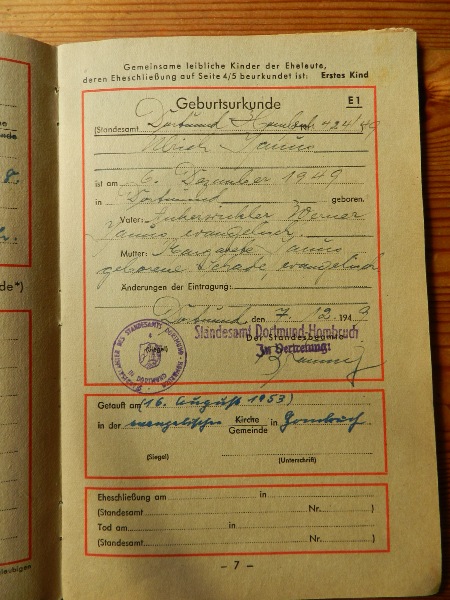 Gemeinsame leibliche Kinder der Eheleute,
deren Eheschließung auf Seite 4/5 beurkundet ist: Erstes Kind
Geburtsurkunde E 1
(Standesamt Dortmund Hombruch Nr. 424/49
Ulrich
ist am 6. Dezember 1949
in Dortmund geboren.
Vater: Ankerwickler Werner
evangelisch
Mutter: Margarete
geborene Schade, evangelisch
Änderungen der Eintragung:
Dortmund, den 7. 12. 1949
Standesamt Dortmund-Hombruch
Der Standesbeamte
In Vertretung:
Getauft am (16. August 1953)
in der evangelischen Kirche Gemeinde in Hombruch
(Siegel) (Unterschrift)
Eheschließung am in
(Standesamt Nr. )
Tod am in
(Standesamt Nr. )
- 7 -